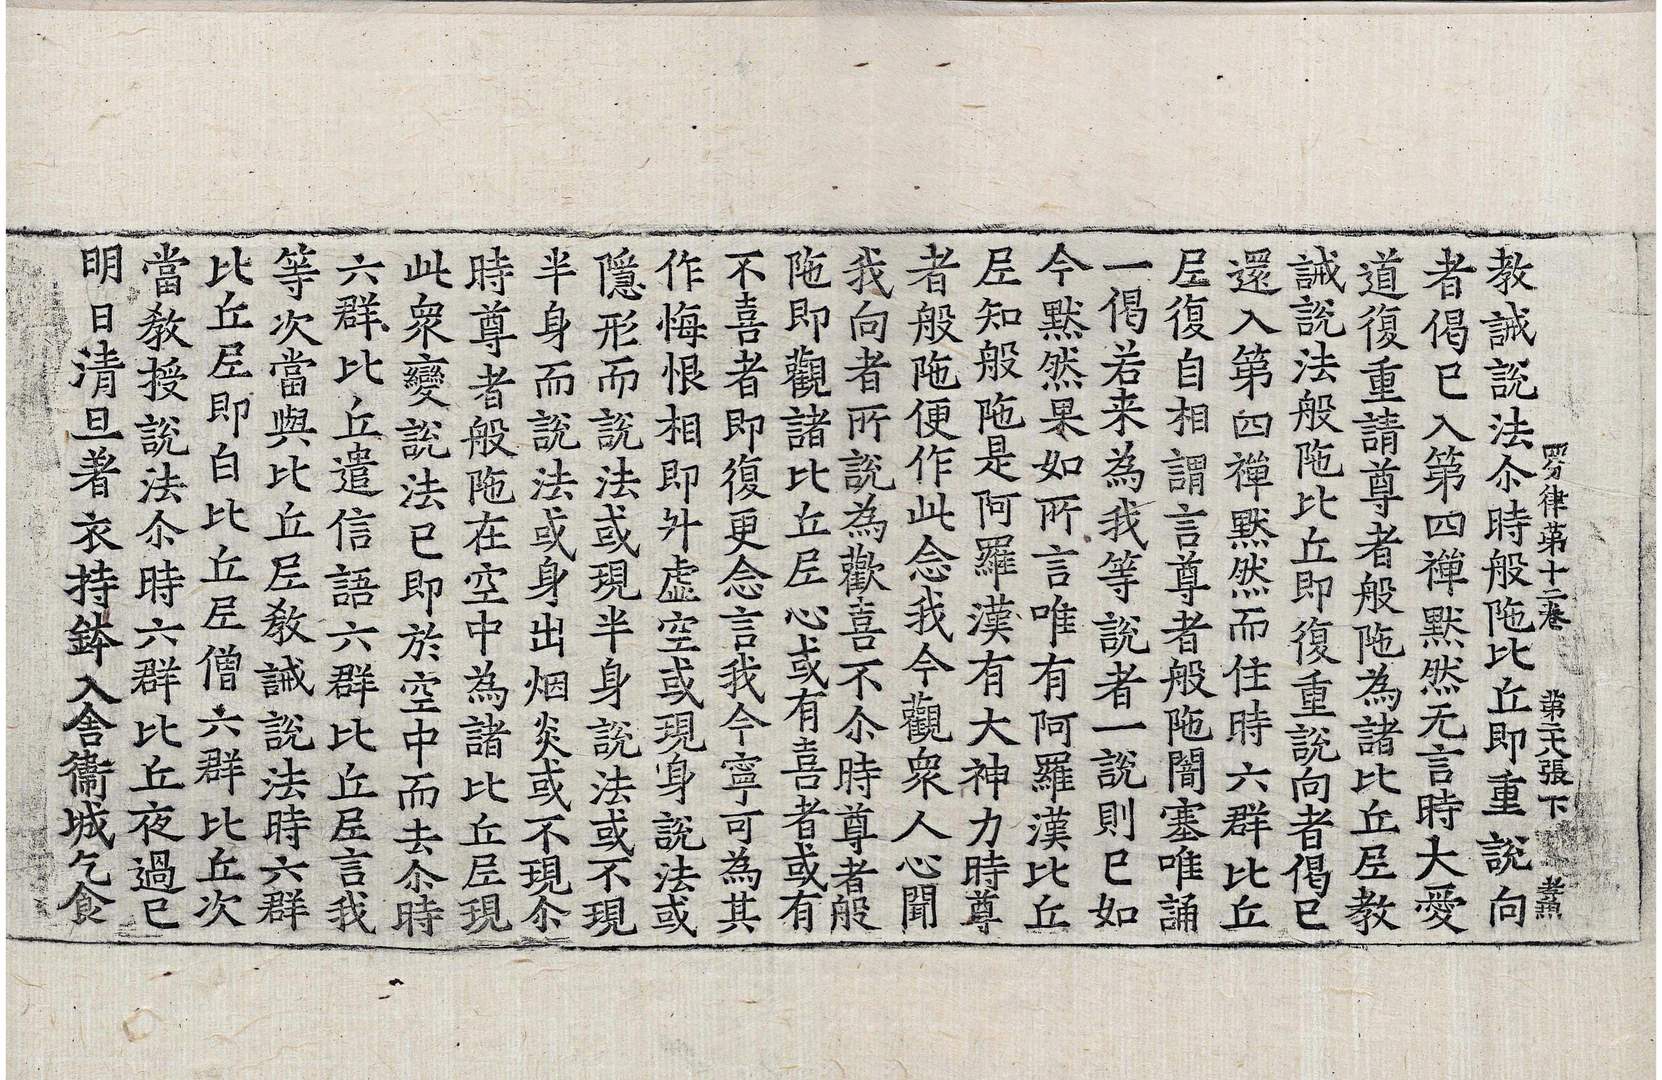 四分律第十二卷 第二十六張 下 孝㷱
教誡說法尒時般陁比丘即重說向
者偈已入第四禪默然无言時大愛
道復重請尊者般陁為諸比丘𡰱教
誡說法般陁比丘即復重說向者偈已
還入第四禪默然而住時六群比丘
𡰱復自相謂言尊者般陁闇塞唯誦
一偈若来為我等說者一說則已如
今默然果如所言唯有阿羅漢比丘
𡰱知般陁是阿羅漢有大神力時尊
者般陁便作此念我今觀衆人心聞
我向者所說為歡喜不尒時尊者般
陁即觀諸比丘𡰱心或有喜者或有
不喜者即復更念言我今寧可為其
作悔恨相即升虛空或現身說法或
隱形而說法或現半身說法或不現
半身而說法或身出烟炎或不現尒
時尊者般陁在空中為諸比丘𡰱現
此衆變說法已即於空中而去尒時
六群比丘遣信語六群比丘𡰱言我
等次當與比丘𡰱教誡說法時六群
比丘𡰱即白比丘𡰱僧六群比丘次
當教授說法尒時六群比丘夜過已
明日清旦著衣持鉢入舍衞城乞食